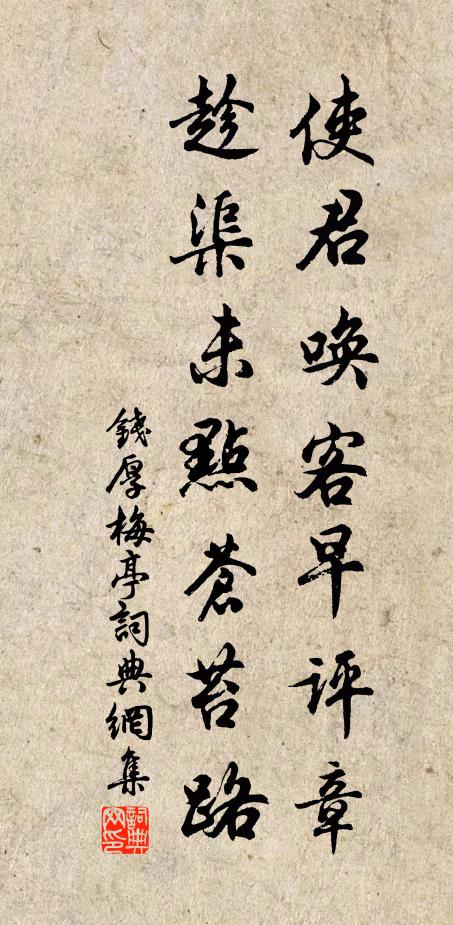 使君唤客早评章
趁渠未點蒼苔路
錢厚梅亭詞典網集
詞典網印